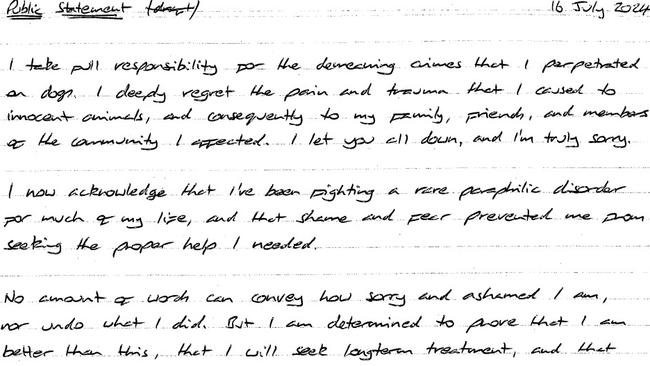 Public Statement (draft) 16 July 2024
I take full responsibility for the demeaning crimes that I perpetrated
on dogs. I deeply regret the pain and trauma that I caused to
innocent animals, and consequently to my family, friends, and members
of the community I affected. I let you all down, and I'm truly sorry.
I now acknowledge that I've been fighting a rare paraphilic disorder
for much of my life, and that shame and fear prevented me from
seeking the proper help I needed.
No amount of words can convey how sorry and ashamed I am,
nor undo what I did. But I am determined to prove that I am
better than this, that I will seek longterm treatment, and that